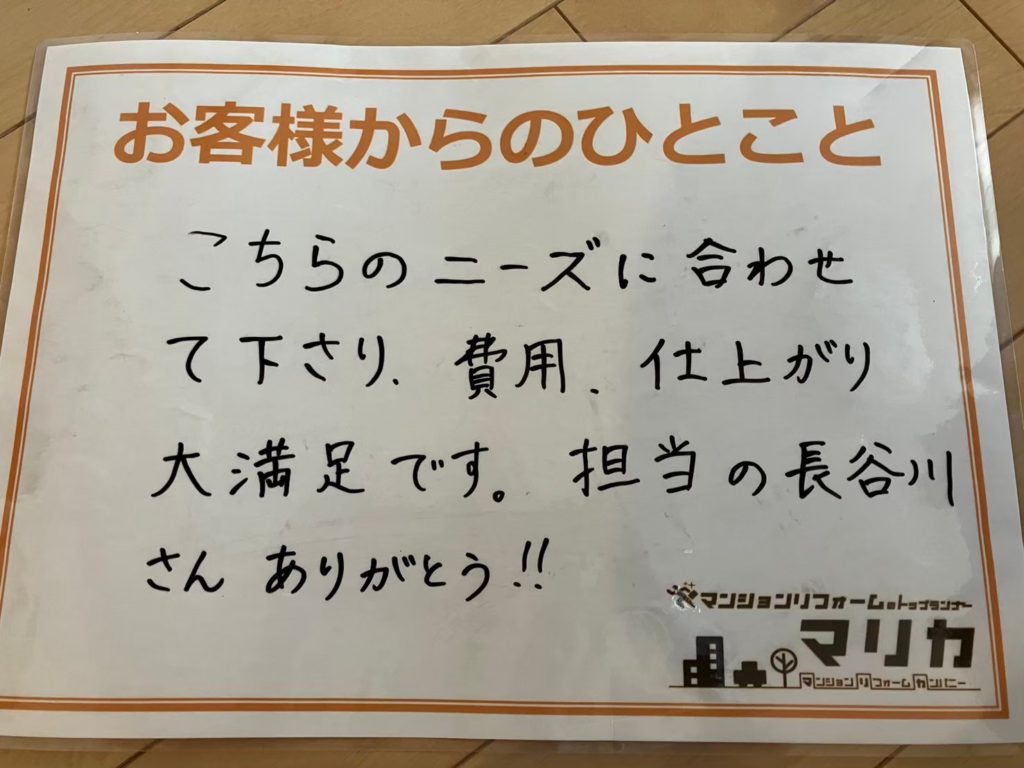 お客様からのひとこと
こちらのニーズに合わせ
て下さり、費用、仕上がり
大満足です。担当の長谷川
さん ありがとう!!
マンションリフォームのトップランナー
マリカ
マンションリフォームカンパニー